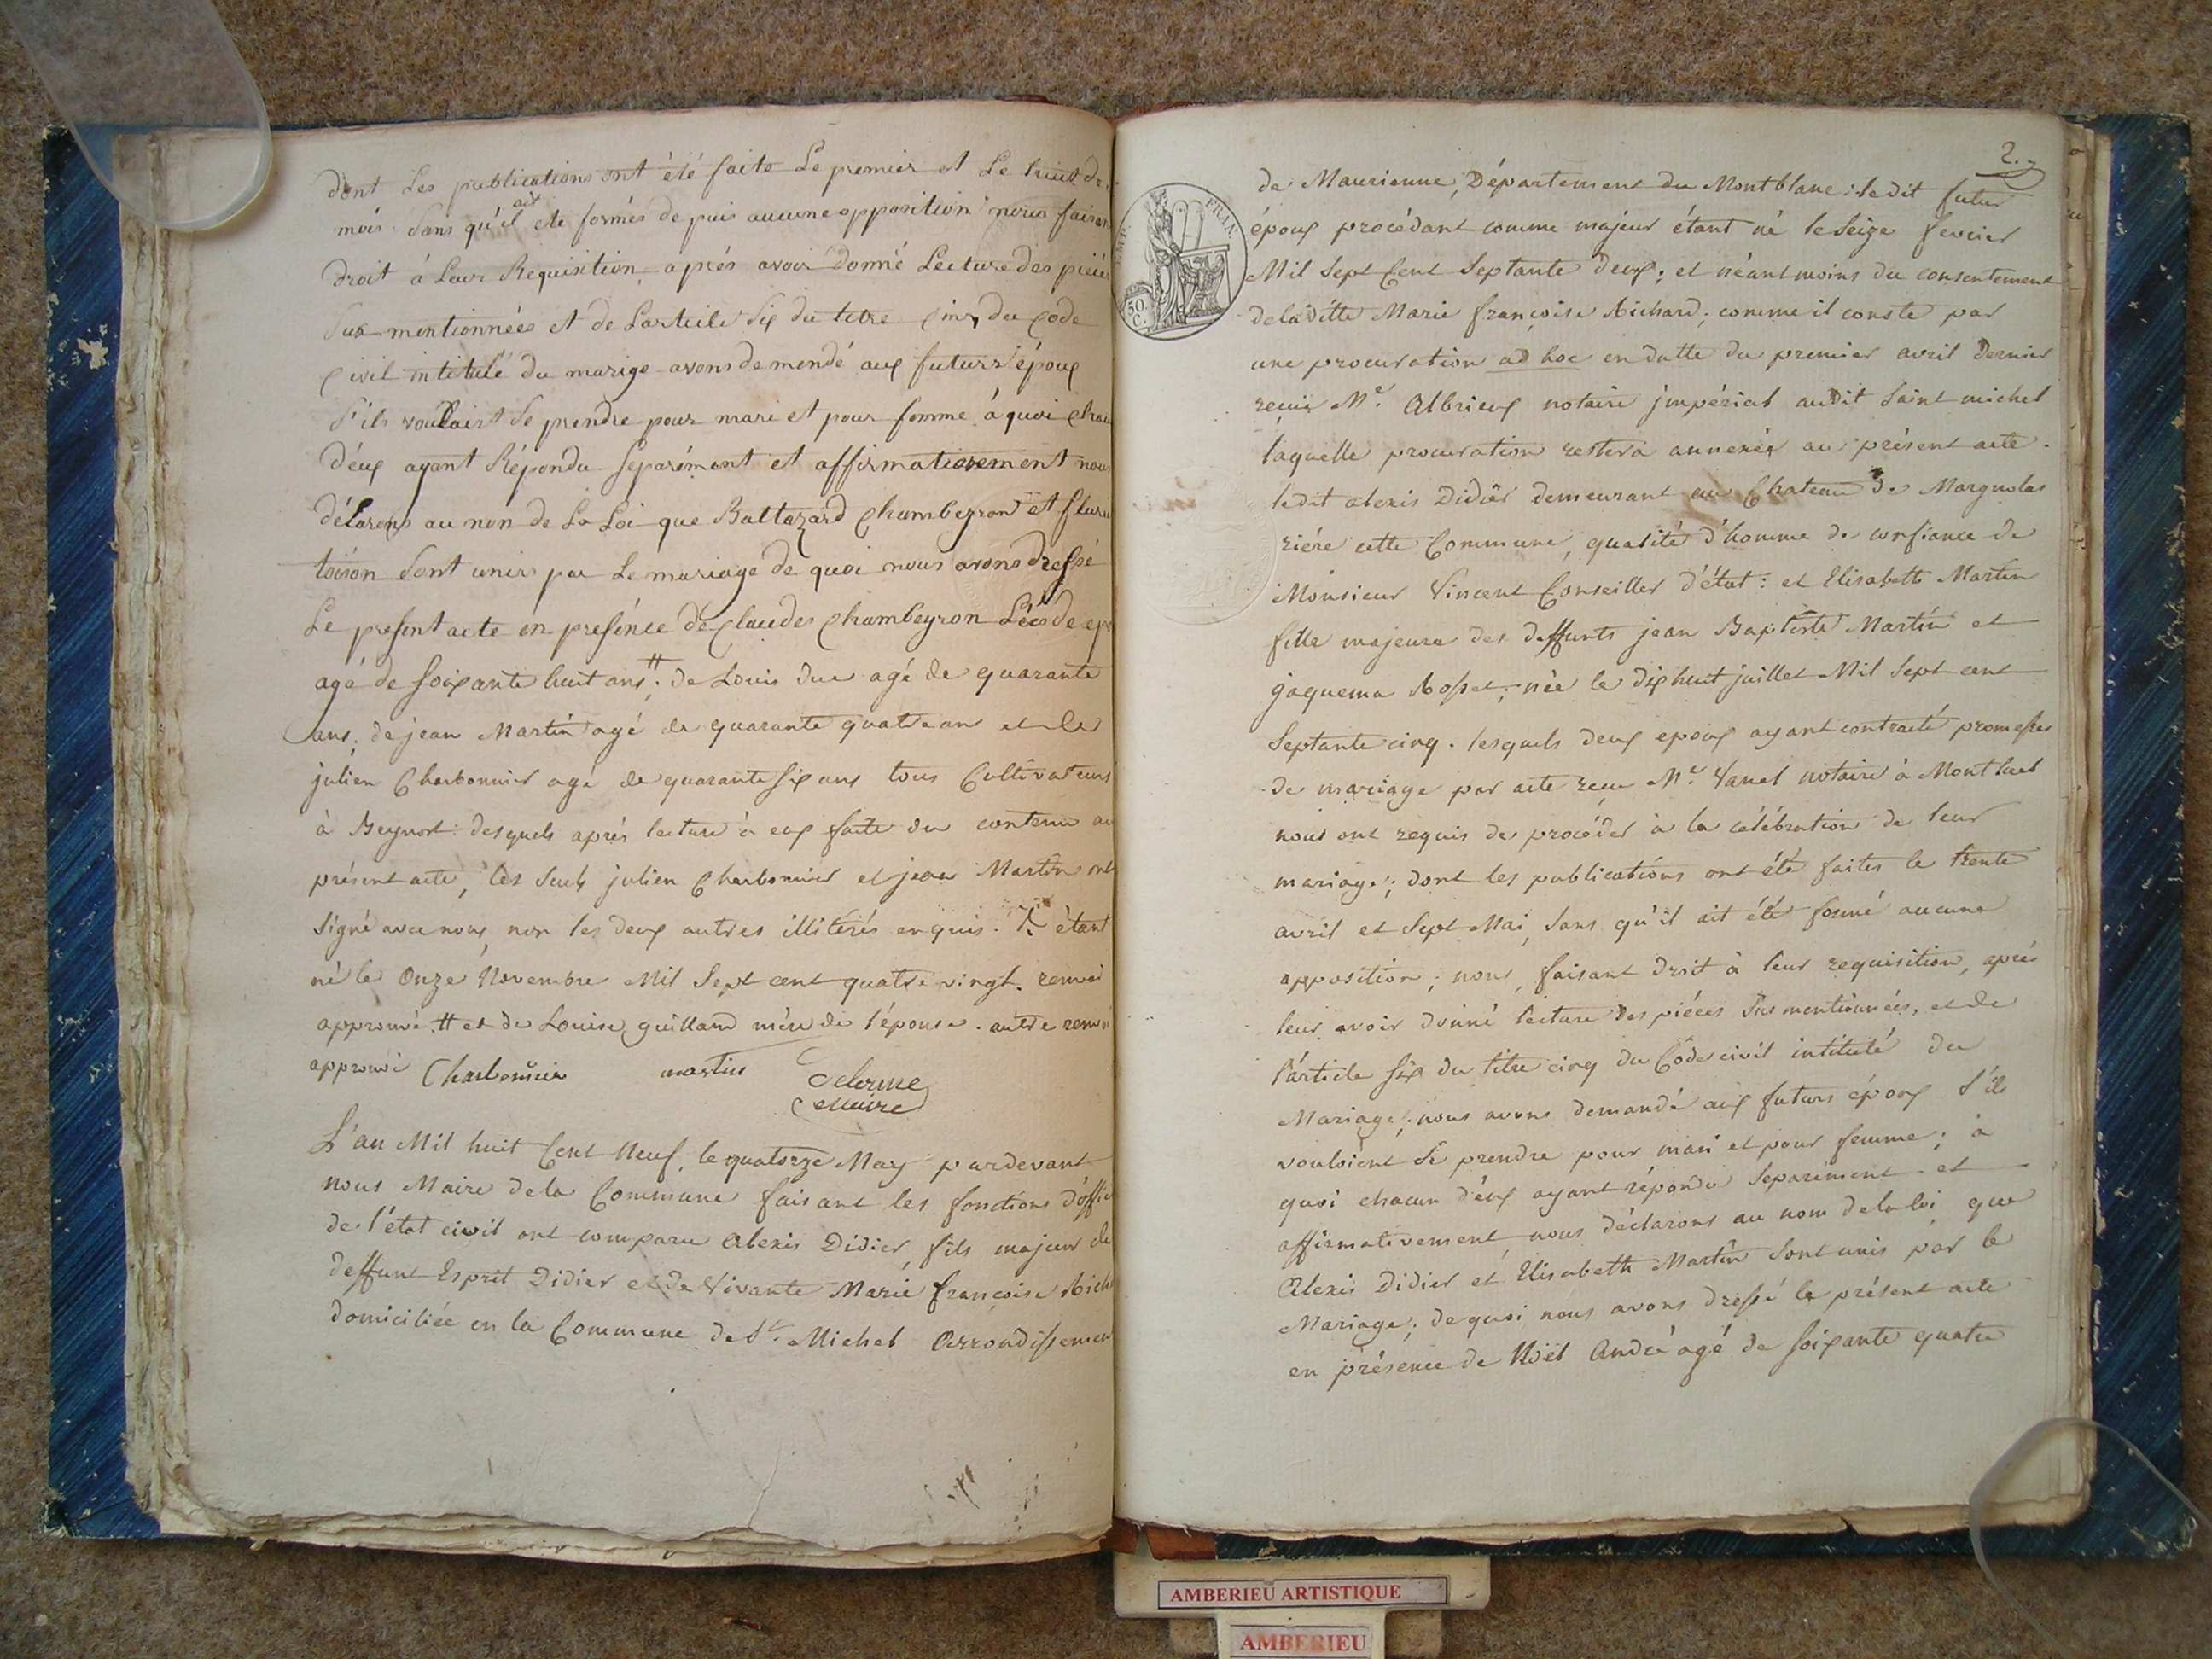 dont Les publications ont été faite Le premier et Le huit de
mois Sans qu'il ait ete formés de puis aucune opposition nous faisan
droit à Leur Requisition après avoir donné Lecture des piéce
Sus mentionnées et de L'article Six du titre Cinq du Code
Civil intitulé du marige avons demendé aux futurs époux
S'ils voulaint Se prendre pour mari et pour femme à quoi chac
d'eux ayant Répondu Séparément et affirmativement nous
déClarons au non de La Loi que Baltazard Chambeyron et fleurie
toison Sont unirs par Le mariage de quoi nous avons dressé
Le present acte en présence de Claudes Chambeyron
agé de soixante huit ans # de Louis duc agé de quarante
ans, de jean Martin agé de quarante quatre ans et de
julien Charbonnier agé de quarante six ans tous Cultivateurs
à Beynost desquels après lecture à eux faite du contenu au
présent acte, les seuls julien Charbonnier et jean Martin ont
signé avec nous, non les deux autres illitérés enquis. étant
né le Onze Novembre Mil Sept cent quatre vingt. renvoi
approuvé # et de Louise guilland mère de l'épouse. autre renvoi
approuvé Charbonnier martin Delorme
Maire
L'an Mil huit Cent Neuf, le quatorze May pardevant
nous Maire dela Commune faisant les fonctions d'offic
de l'état civil ont comparu Alexis Didier, fils majeur de
deffunt Esprit Didier et de Vivante Marie françoise Rich
domiciliée en la Commune de St. Michel Arrondissemen
2.
EMP. FRAN.
50. C.
de Maurienne, Département du Montblanc: le dit futur
époux procédant comme majeur étant né le Seize fevrier
Mil Sept Cent Septante deux; et néantmoins du consentement
deladitte Marie françoise Richard; comme il conste par
une procuration ad hoc en datte du premier avril Dernier
recuie Me. Albrieux notaire jmpérial audit Saint michel
laquelle procuration restera annexée au présent acte.
ledit alexis Didier demeurant au Chateau de Margnolas
riére cette Commune, qualité d'homme de confiance de
Monsieur Vincent Conseiller d'état: et Elisabeth Martin
fille majeure des deffunts jean Baptiste Martin et
jaquema Rosset; née le dixhuit juillet Mil Sept cent
Septante cinq. lesquels deux epoux ayant contracté promesses
de mariage par acte recu Me. Vanel notaire à Montluel
nous ont requis de procéder à la célébration de leur
mariage; dont les publications ont été faites le trente
avril et Sept Mai, Sans qu'il ait été formé aucune
opposition; nous, faisant droit à leur requisition, après
leur avoir donné lecture des piéces Sus mentionnées, et de
l'article Six du titre cinq du Code civil intitulé du
Mariage; nous avons demandé aux futurs époux S'ils
vouloient Se prendre pour mari et pour femme; à
quoi chacun d'eux ayant répondu Séparément et
affirmativement nous déclarons au nom dela loi que
Alexis Didier et Elisabeth Martin Sont unis par le
Mariage; dequoi nous avons dressé le présent acte
en présence de Noël André agé de soixante quatre
AMBERIEU ARTISTIQUE
AMBERIEU